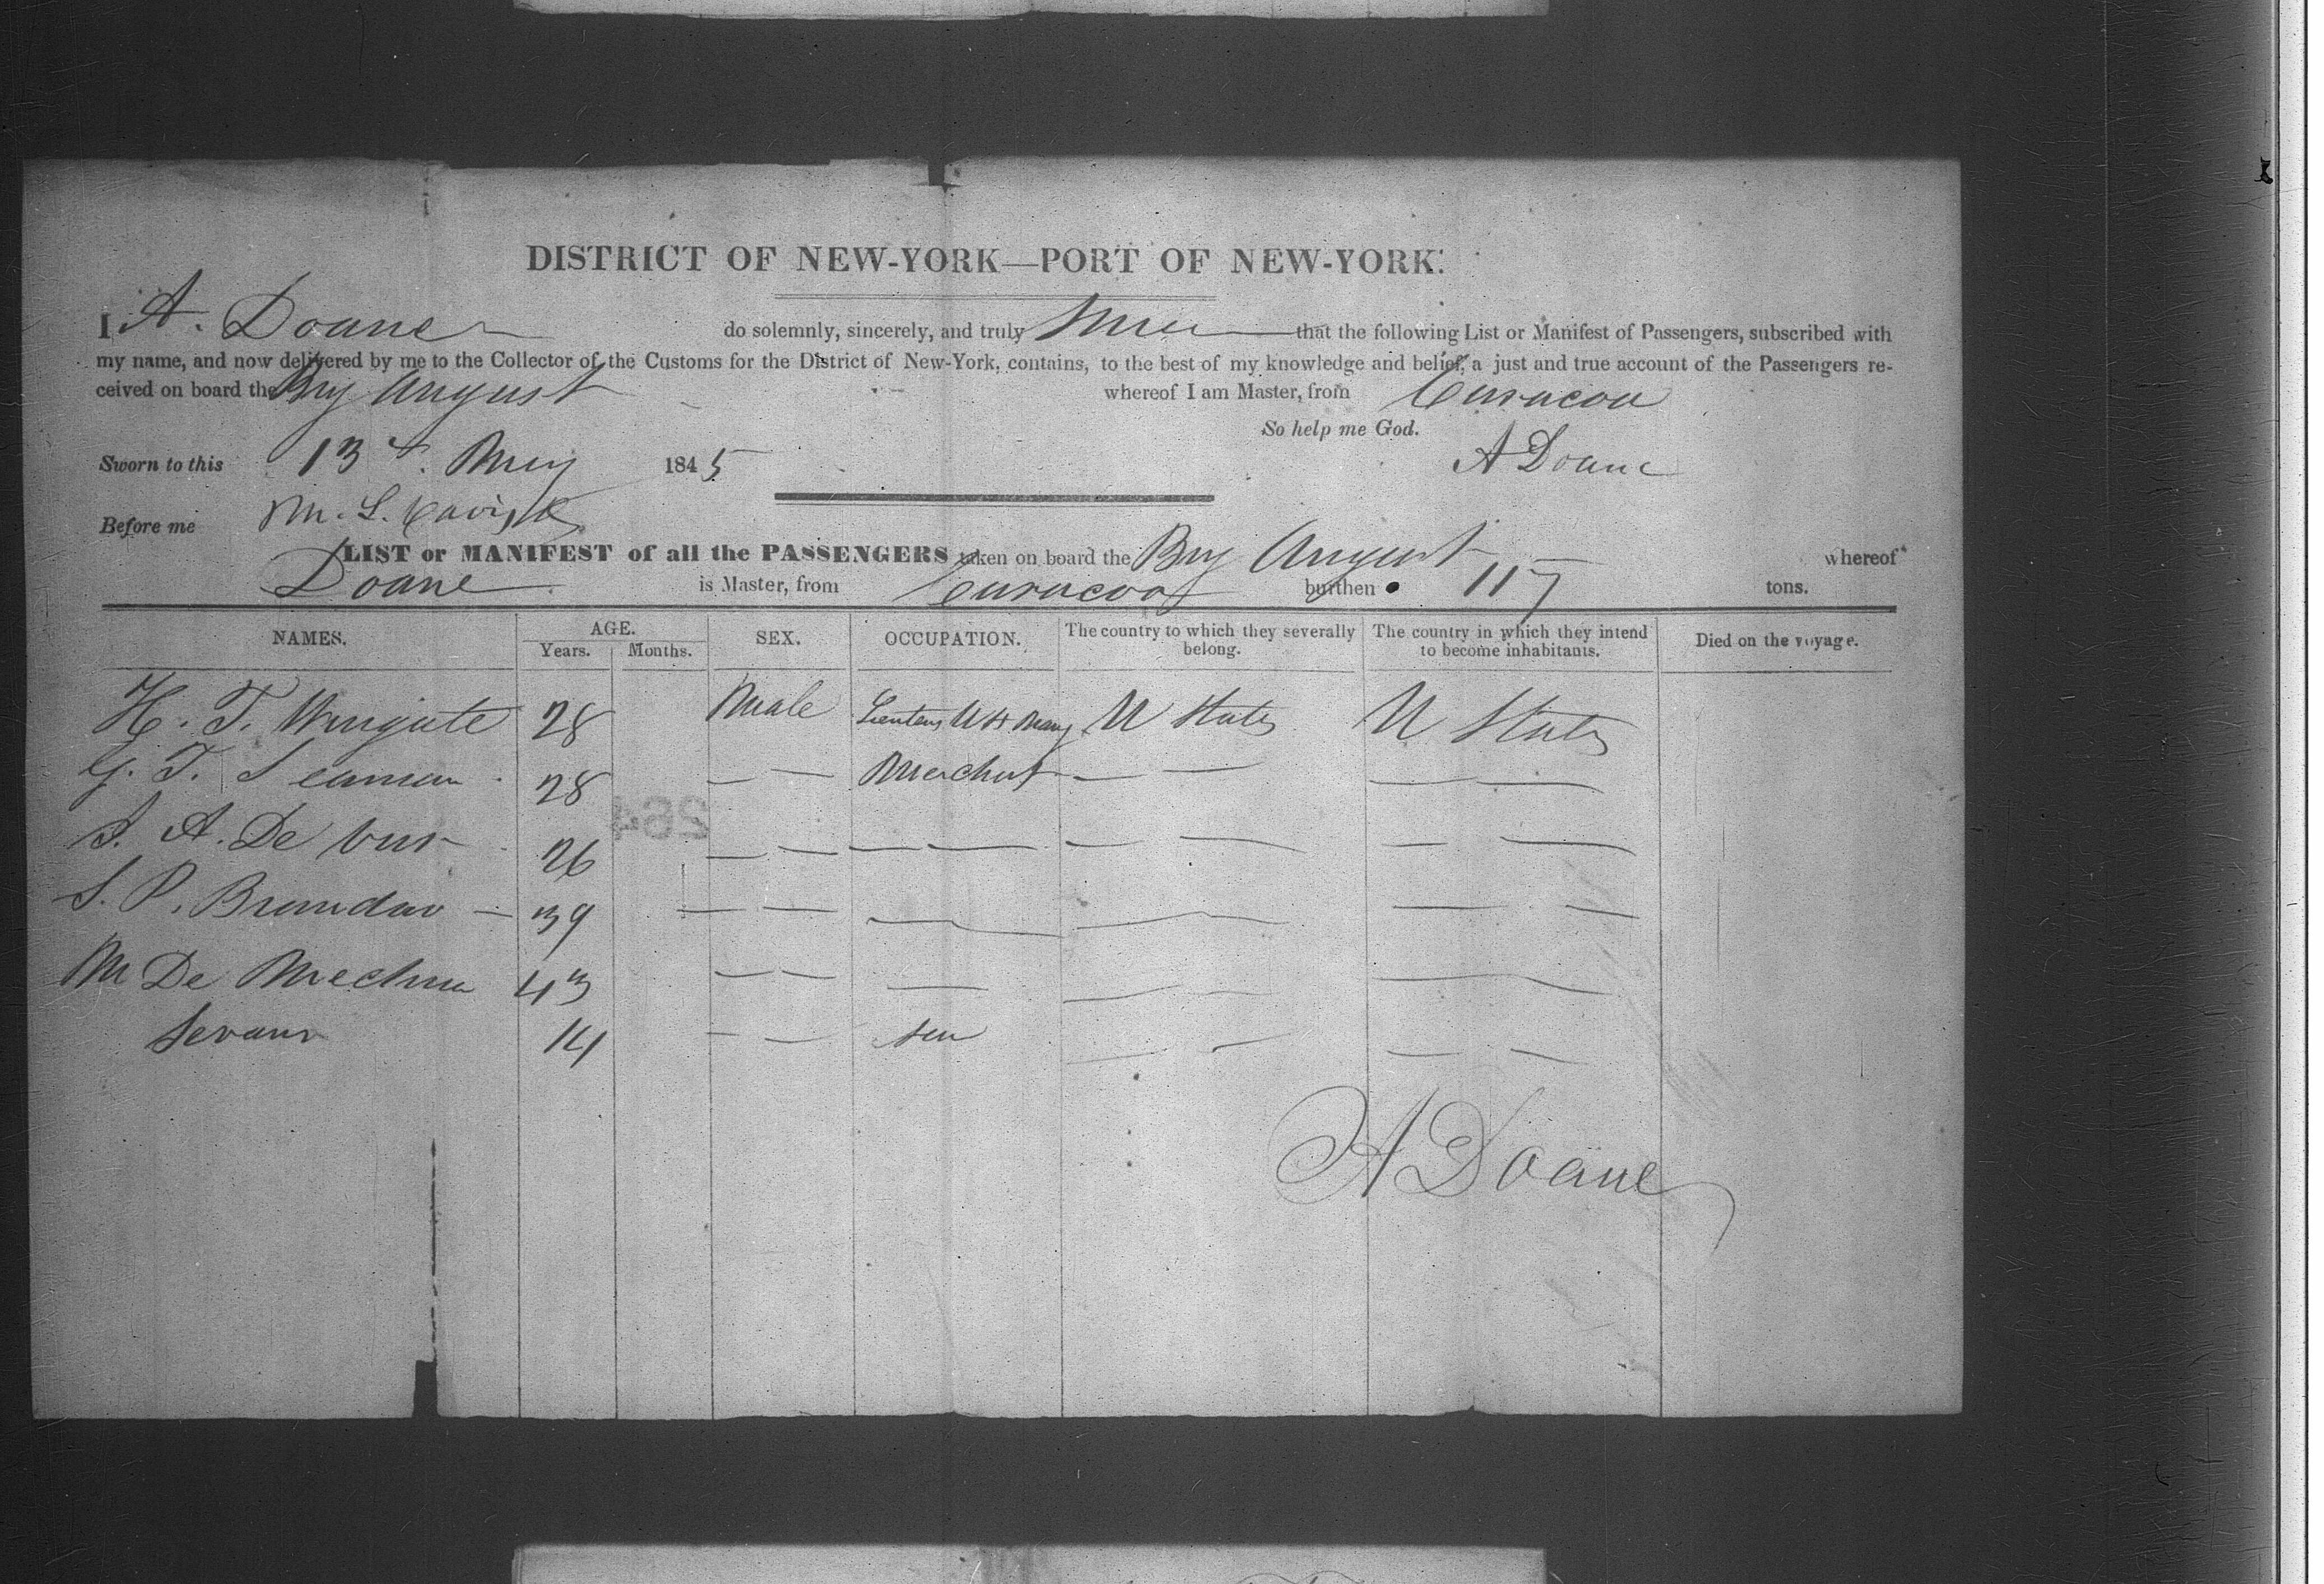 DISTRICT OF NEW-YORK—PORT OF NEW-YORK.
I A. Doane do solemnly, sincerely, and truly that the following List or Manifest of Passengers, subscribed with
my name, and now delivered by me to the Collector of the Customs for the District of New-York, contains, to the best of my knowledge and belief, a just and true account of the Passengers re-
ceived on board the Brig August whereof I am Master, from Curacoa
So help me God.
Sworn to this 13th. May 1845 A Doane
Before me
LIST or MANIFEST of all the PASSENGERS taken on board the Brig August whereof
Doane is Master, from Curacoa burthen 117 tons.
NAMES. AGE. SEX. OCCUPATION. The country to which they severally belong. The country in which they intend to become inhabitants. Died on the voyage.
Years. Months.
H. T. Wingate 28 Male U States U States
G. T. Seaman 28 — — Merchant — — — —
26 — — — — — — — —
S. P. 39 — — — — — —
M De 43 — — — — — — —
Servant 14 — — — — — —
264
A Doane